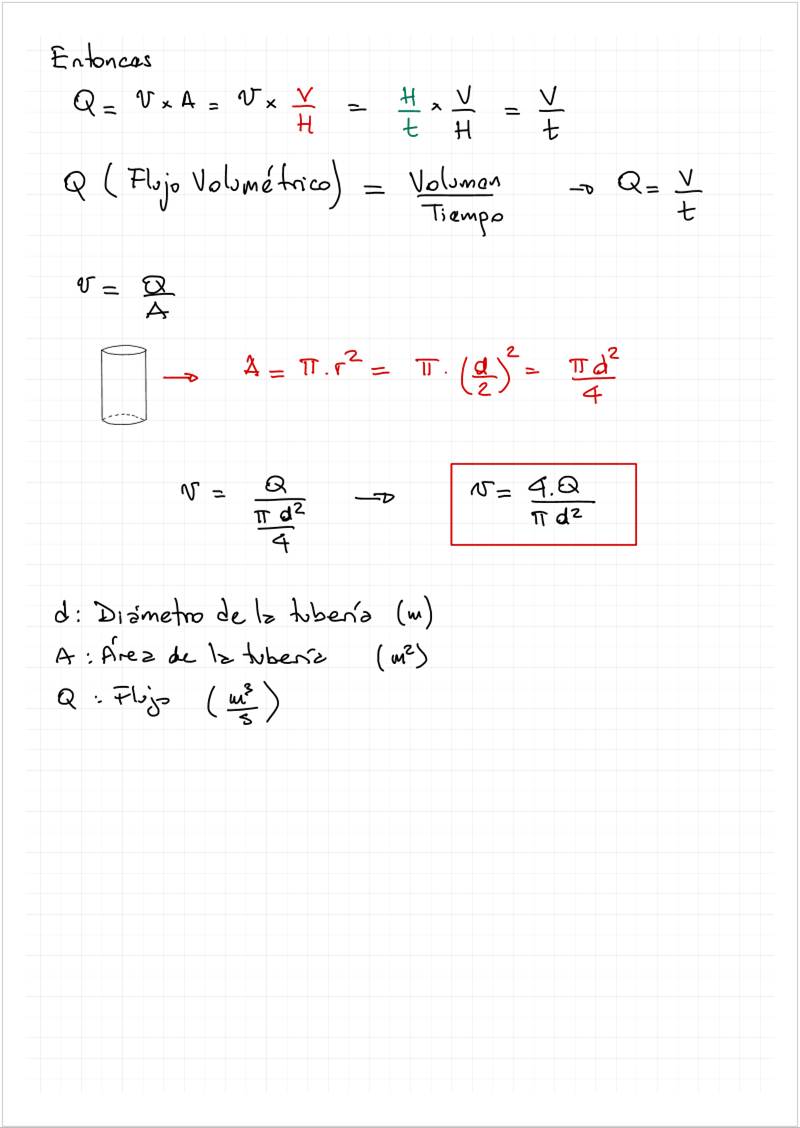 Entonces
Q = v × A = v × V/H = H/t × V/H = V/t
Q (Flujo Volumétrico) = Volumen/Tiempo → Q = V/t
v = Q/A
→ A = π . r² = π . (d/2)² = πd²/4
v = Q/(πd²/4) → v = 4.Q/πd²
d : Diámetro de la tubería (m)
A : Área de la tubería (m²)
Q : Flujo (m³/s)